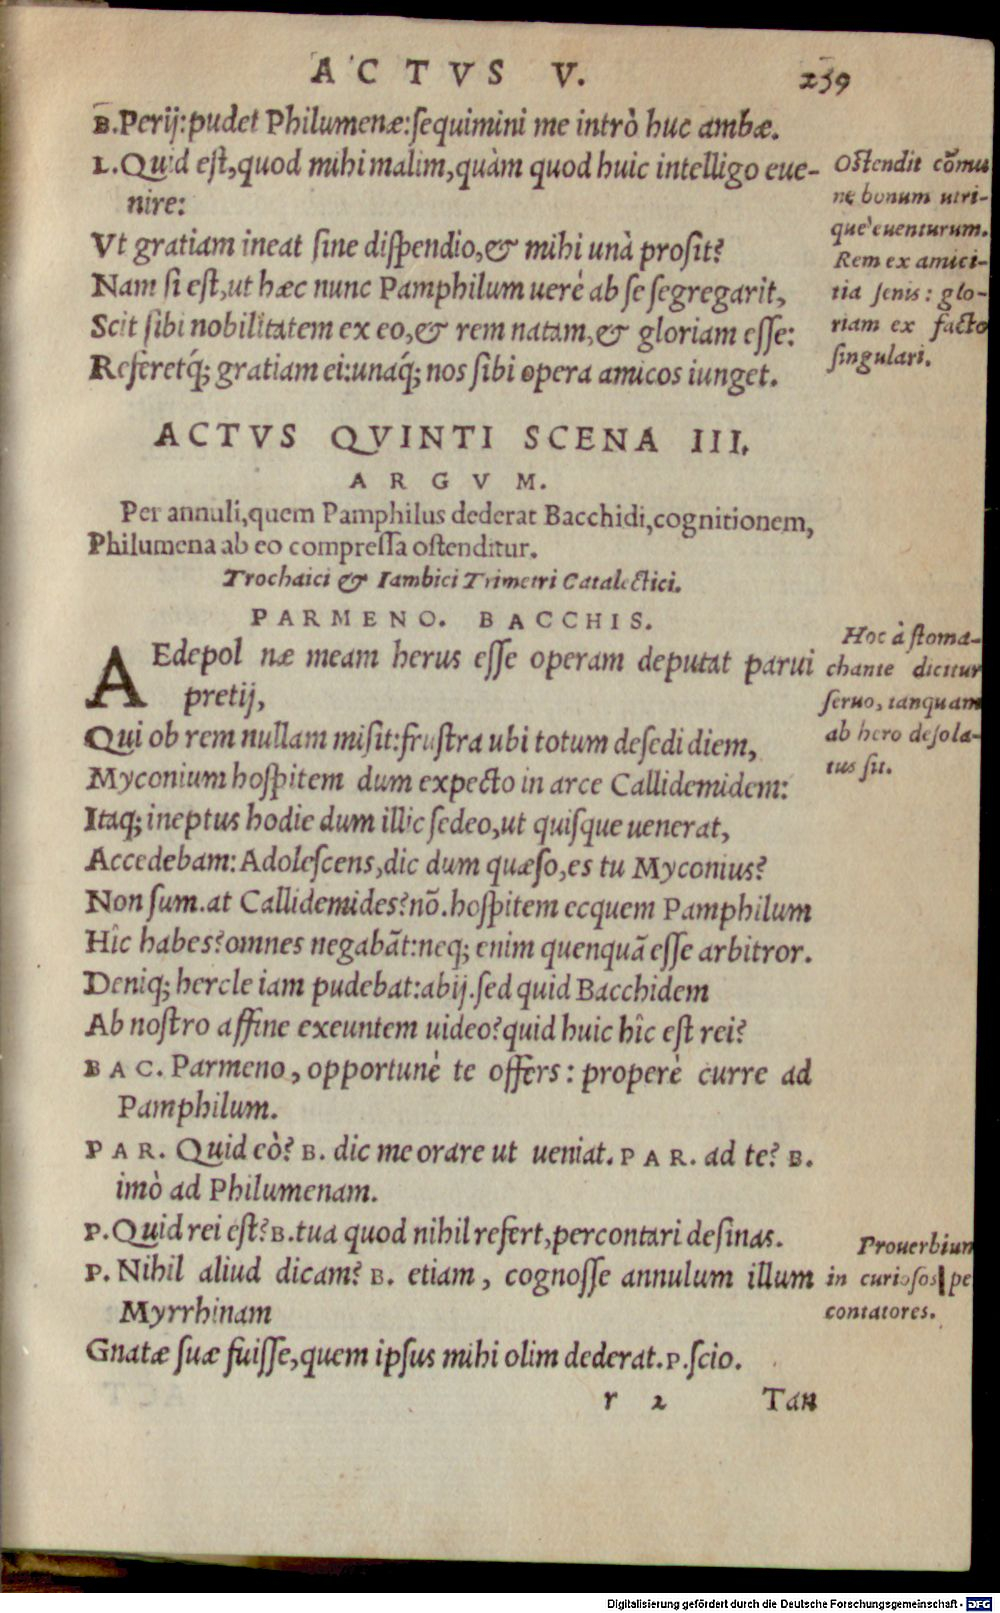 ACTVS V. 259
B. Perij: pudet Philumenæ: sequimini me intrò huc ambæ.
L. Quid est, quod mihi malim, quàm quod huic intelligo eue-
nire:
Vt gratiam ineat sine dispendio, & mihi unà prosit?
Nam si est, ut hæc nunc Pamphilum uerè ab se segregarit,
Scit sibi nobilitatem ex eo, & rem natam, & gloriam esse:
Referetq́; gratiam ei: unaq́; nos sibi opera amicos iunget.
Ostendit cōmu
ne bonum utri-
què euenturum.
Rem ex amici-
tia senis: glo-
riam ex facto
singulari.
ACTVS QVINTI SCENA III.
ARGVM.
Per annuli, quem Pamphilus dederat Bacchidi, cognitionem,
Philumena ab eo compressa ostenditur.
Trochaici & Iambici Trimetri Catalectici.
PARMENO. BACCHIS.
AEdepol næ meam herus esse operam deputat parui
pretij,
Qui ob rem nullam misit: frustra ubi totum desedi diem,
Myconium hospitem dum expecto in arce Callidemidem:
Itaq; ineptus hodie dum illic sedeo, ut quisque uenerat,
Accedebam: Adolescens, dic dum quæso, es tu Myconius?
Non sum. at Callidemides? nō. hospitem ecquem Pamphilum
Hîc habes? omnes negabāt: neq; enim quenquā esse arbitror.
Deniq; hercle iam pudebat: abij. sed quid Bacchidem
Ab nostro affine exeuntem uideo? quid huic hîc est rei?
BAC. Parmeno, opportunè te offers: properè curre ad
Pamphilum.
PAR. Quid eò? B. dic me orare ut ueniat. PAR. ad te? B.
imò ad Philumenam.
P. Quid rei est? B. tua quod nihil refert, percontari desinas.
P. Nihil aliud dicam? B. etiam, cognosse annulum illum
Myrrhinam
Gnatæ suæ fuisse, quem ipsus mihi olim dederat. P. scio.
Hoc à stoma-
chante dicitur
seruo, tanquam
ab hero desola-
tus sit.
Prouerbium
in curiosos pe
contatores.
r 2 Tan
Digitalisierung gefördert durch die Deutsche Forschungsgemeinschaft - DFG